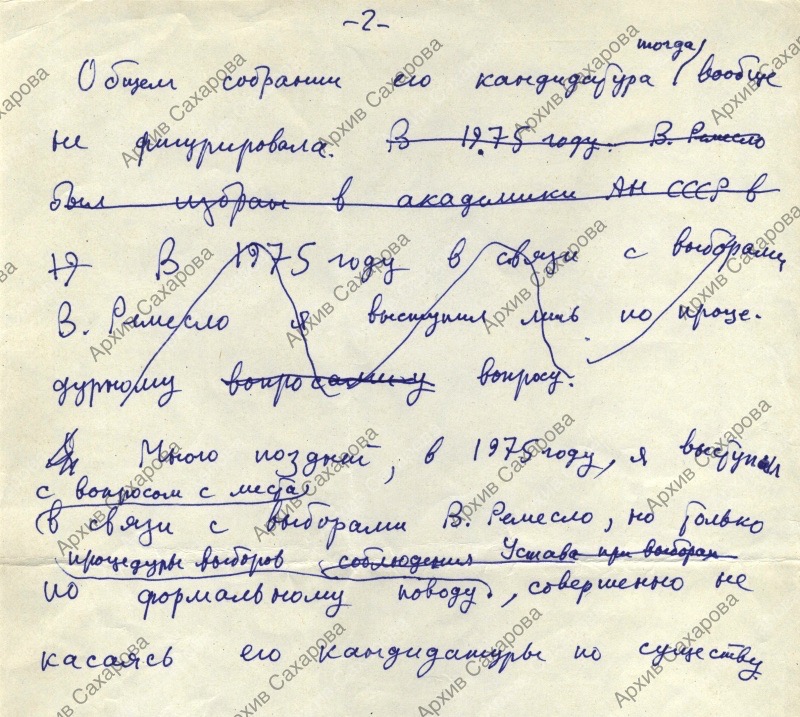 -2-
тогда
Общем собрании его кандидатура вообще
не фигурировала. В 1975 году. В. Ремесло
был избран в академики АН СССР в
19 В 1975 году в связи с выборами
В. Ремесло я выступил лишь по проце-
дурному вопросу.
Много поздней, в 1975 году, я выступил
с вопросом с места
в связи с выборами В. Ремесло, но только
процедуры выборов соблюдения Устава при выборах
по формальному поводу, совершенно не
касаясь его кандидатуры по существу.
Архив Сахарова